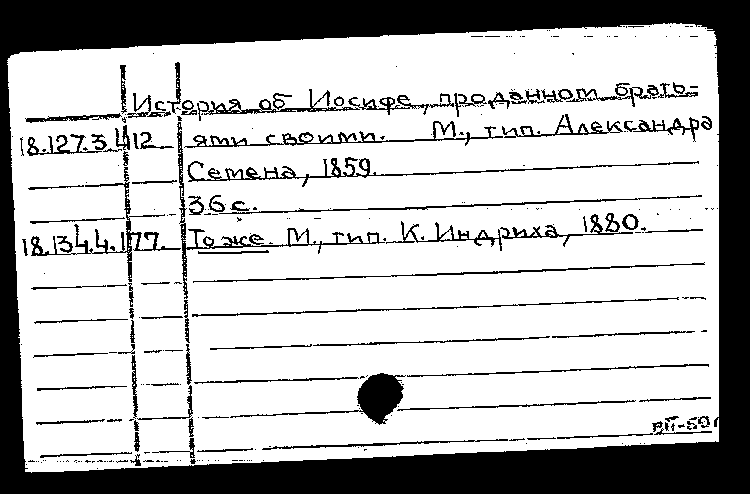 История об Иосифе, проданном брать=
18.127.3.412 ями своими. М., тип. Александра
Семена, 1859.
36 с.
18.134.4.177. То же. М., тип. К. Индриха, 1880.